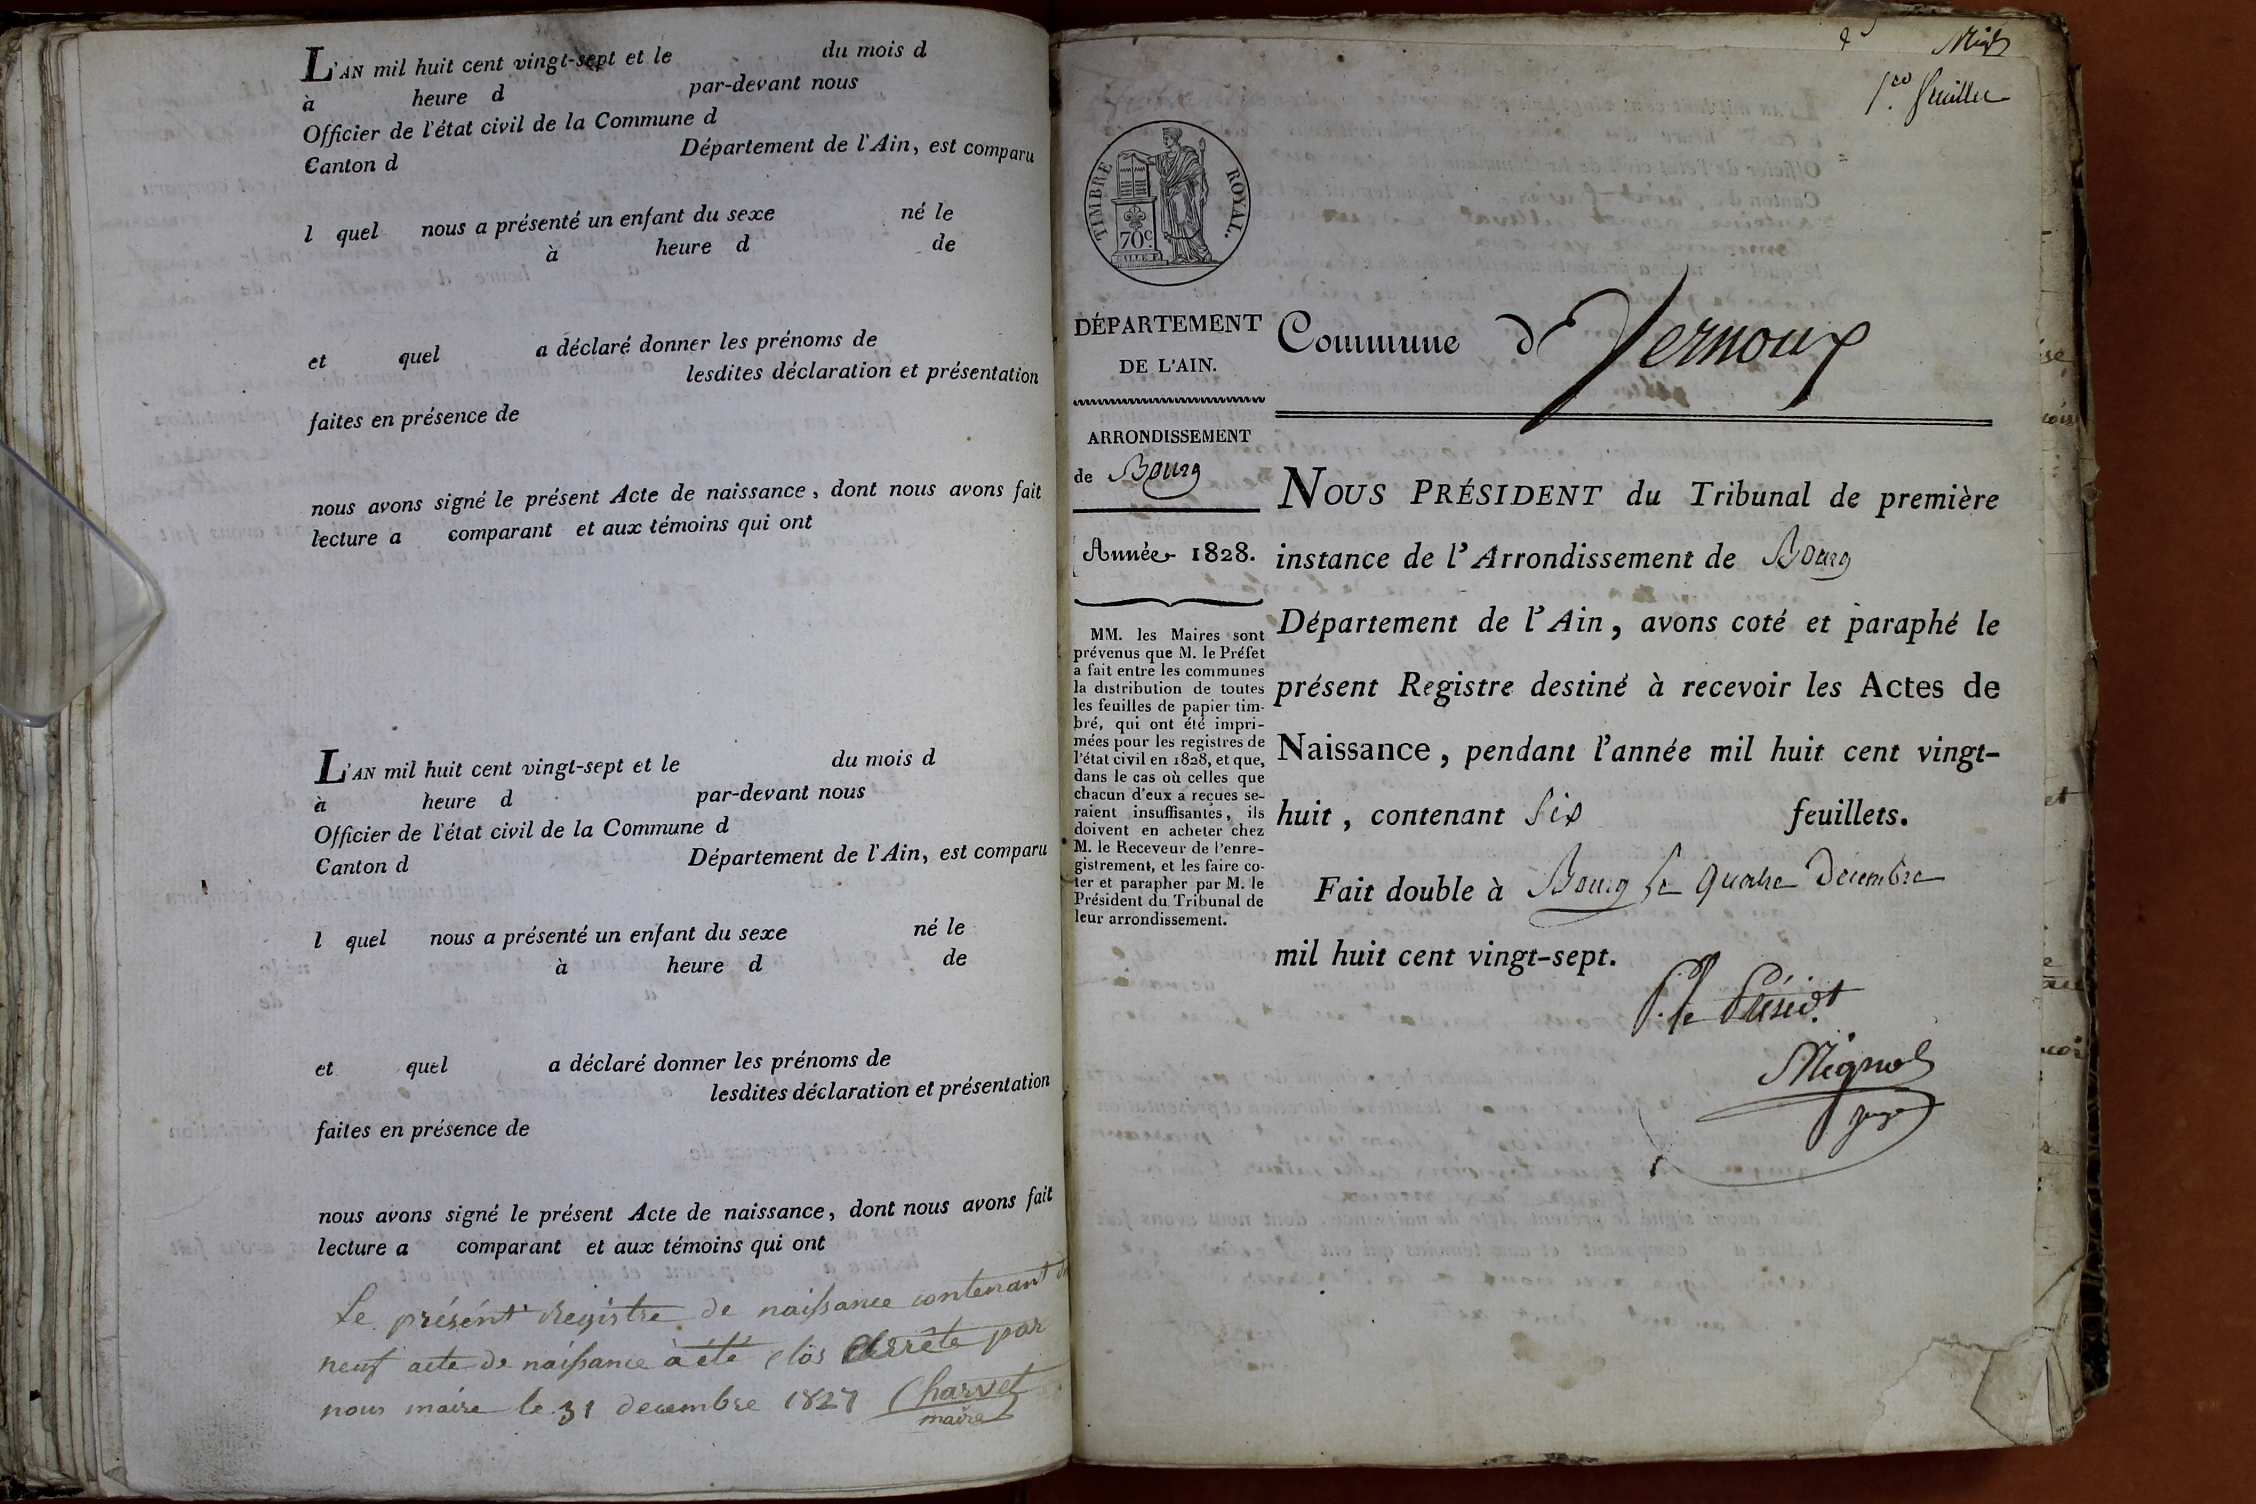 L'AN mil huit cent vingt-sept et le du mois d
à heure d par-devant nous
Officier de l'état civil de la Commune d
Canton d Département de l'Ain, est comparu
l quel nous a présenté un enfant du sexe né le
à heure d de
et quel a déclaré donner les prénoms de
lesdites déclaration et présentation
faites en présence de
nous avons signé le présent Acte de naissance, dont nous avons fait
lecture a comparant et aux témoins qui ont
L'AN mil huit cent vingt-sept et le du mois d
à heure d par-devant nous
Officier de l'état civil de la Commune d
Canton d Département de l'Ain, est comparu
l quel nous a présenté un enfant du sexe né le
à heure d de
et quel a déclaré donner les prénoms de
lesdites déclaration et présentation
faites en présence de
nous avons signé le présent Acte de naissance, dont nous avons fait
lecture a comparant et aux témoins qui ont
Le présént Registre de naissance contenant
neuf acte de naissance à été clos arrête par
nous maire le 31 decembre 1827 Charvet
maire
1er feuillet
TIMBRE ROYAL.
70c.
DÉPARTEMENT
DE L'AIN.
ARRONDISSEMENT
de Bourg
Année 1828.
MM. les Maires sont
prévenus que M. le Préfet
a fait entre les communes
la distribution de toutes
les feuilles de papier tim-
bré, qui ont été impri-
mées pour les registres de
l'état civil en 1828, et que,
dans le cas où celles que
chacun d'eux a reçues se-
raient insuffisantes, ils
doivent en acheter chez
M. le Receveur de l'enre-
gistrement, et les faire co-
ter et parapher par M. le
Président du Tribunal de
leur arrondissement.
Commune de Vernoux
NOUS PRÉSIDENT du Tribunal de première
instance de l'Arrondissement de Bourg
Département de l'Ain, avons coté et paraphé le
présent Registre destiné à recevoir les Actes de
Naissance, pendant l'année mil huit cent vingt-
huit, contenant Six feuillets.
Fait double à Bourg le quatre Décembre
mil huit cent vingt-sept.
P. le Présidt.
Mignot
juge